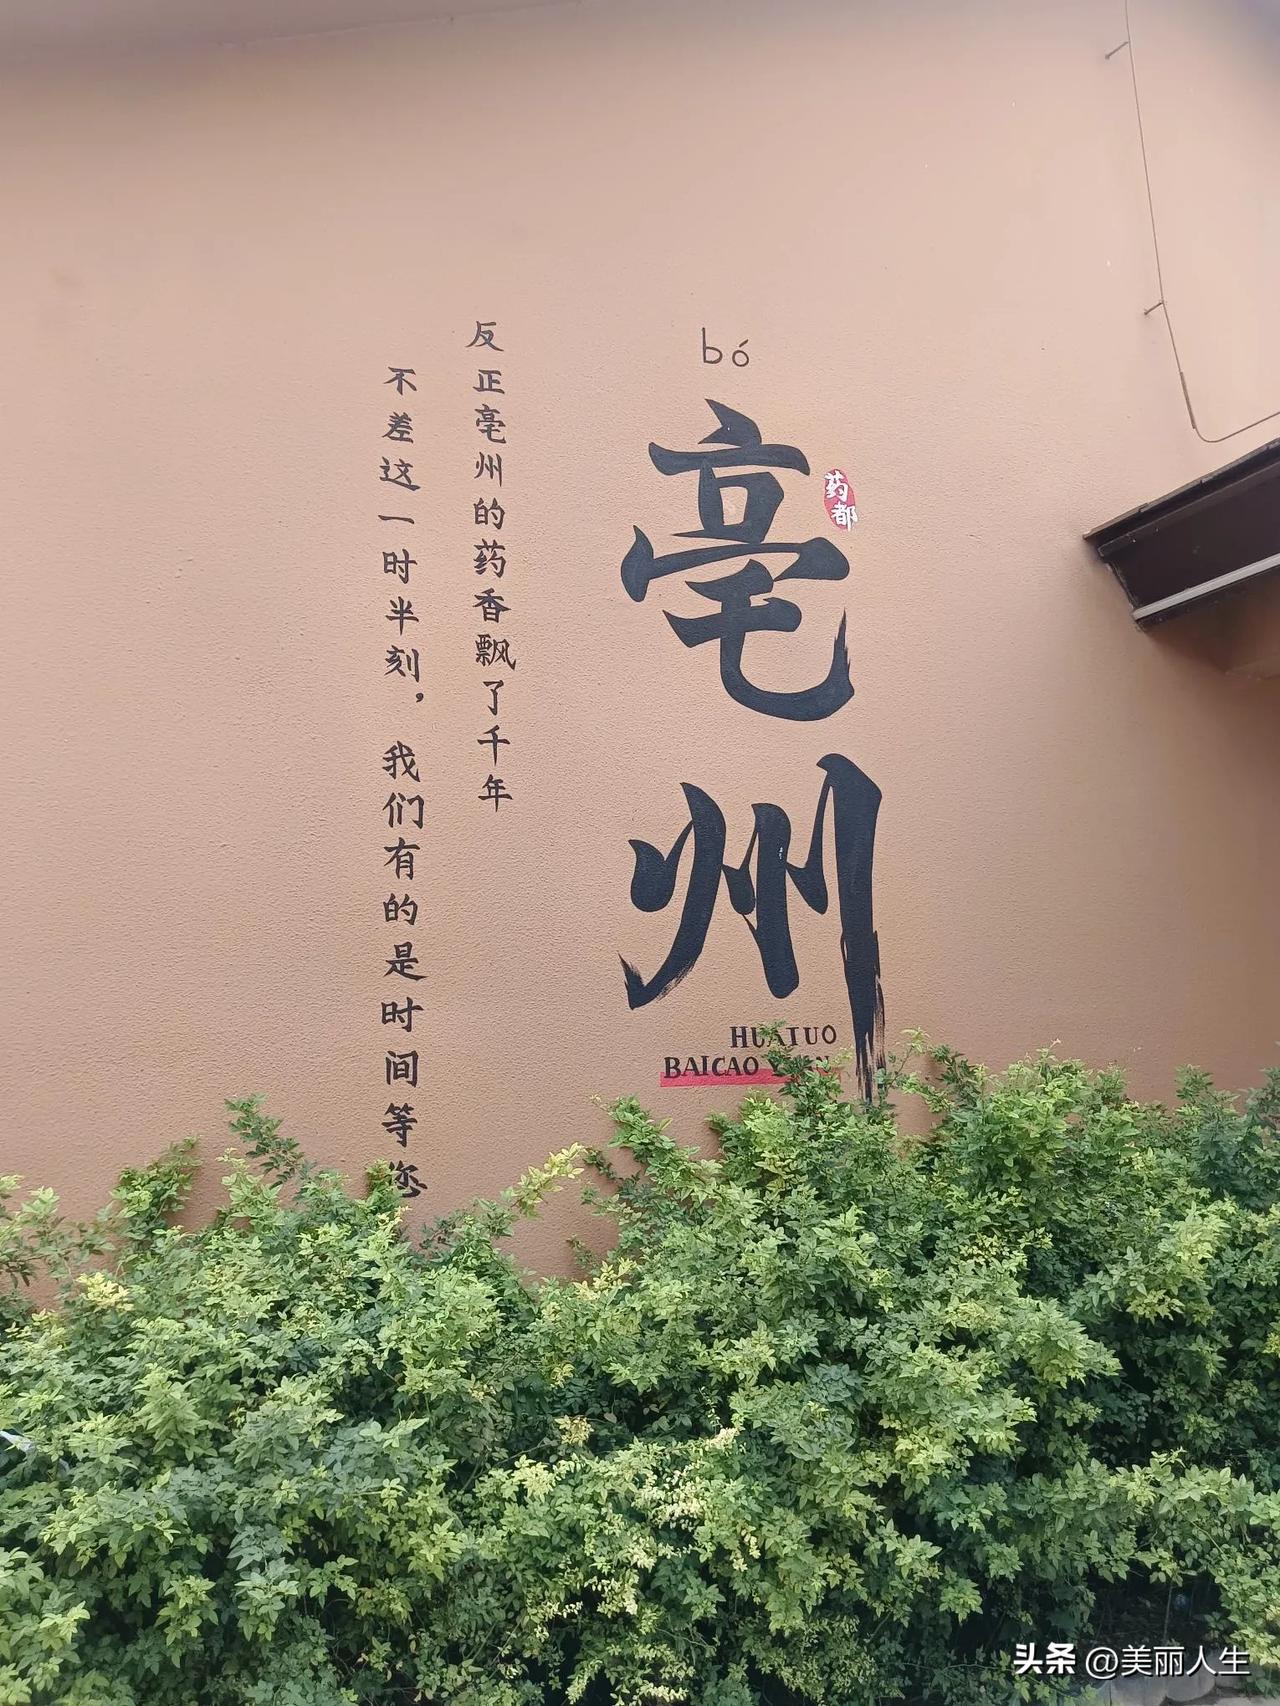 bó
亳州
药都
HUATUO
BAICAO YUAN
反正亳州的药香飘了千年
不差这一时半刻，我们有的是时间等您
头条 @美丽人生